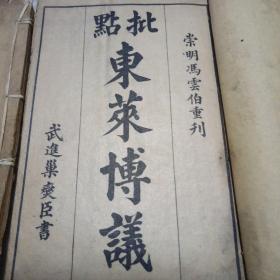 崇明馮雲伯重刋
批點
東萊博議
武進巢奱臣書